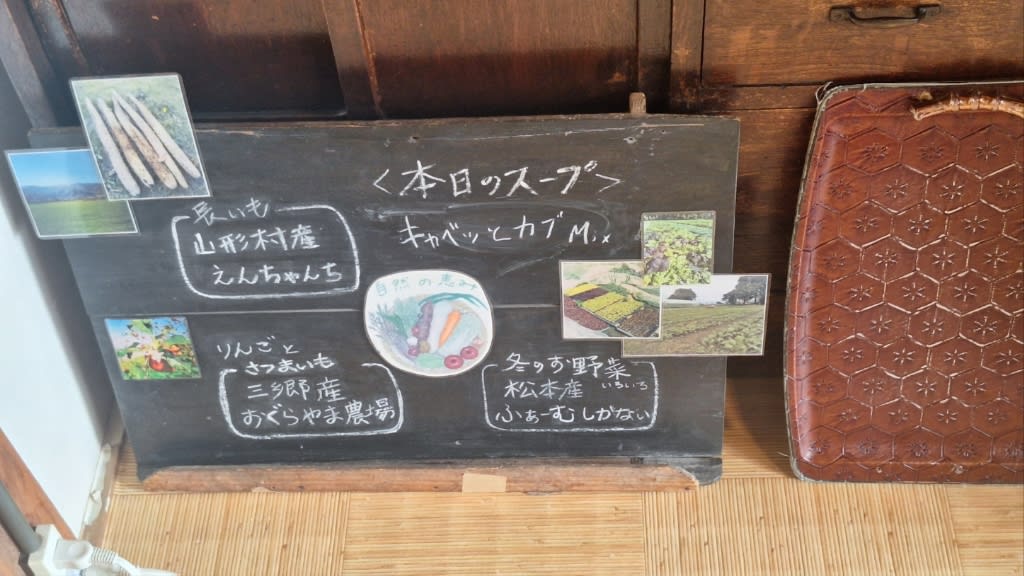 <本日のスープ>
キャベツとカブ Mix
長いも
山形村産
えんちゃんち
自然の恵み
りんごと
さつまいも
三郷産
おぐらやま農場
冬のお野菜
いろいろ
松本産
ふぁーむしかない